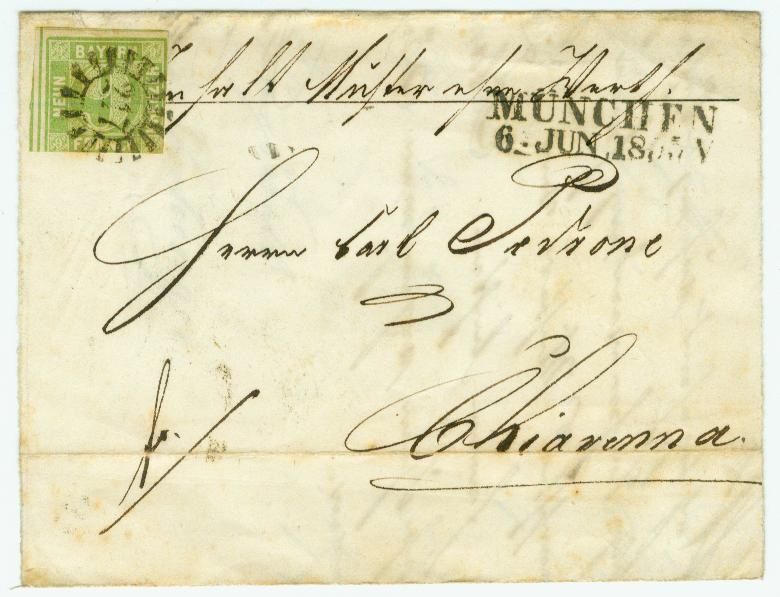 BAYERN
NEUN
Inhalt Muster ohne Werth.
MÜNCHEN
6. JUN. 18
Herrn Carl Pedrone
Chiavenna.